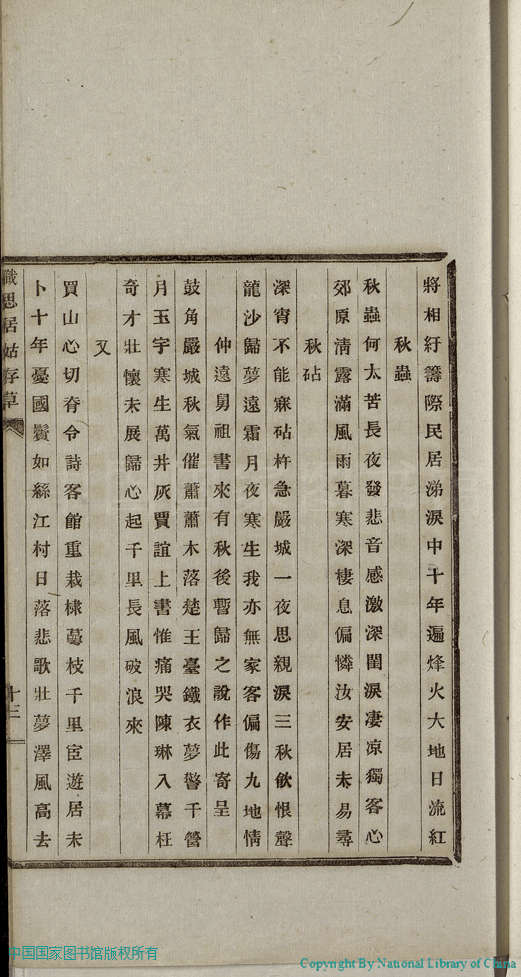 將相紆籌際民居涕淚中十年遍烽火大地日流紅
秋蟲
秋蟲何太苦長夜發悲音感激深閨淚凄凉獨客心
郊原淸露滿風雨暮寒深棲息偏憐汝安居未易尋
秋砧
深宵不能寐砧杵急嚴城一夜思親淚三秋飮恨聲
龍沙歸夢遠霜月夜寒生我亦無家客偏傷九地情
仲遠舅祖書來有秋後暫歸之說作此寄呈
鼓角嚴城秋氣催蕭蕭木落楚王臺鐵衣夢警千營
月玉宇寒生萬井灰賈誼上書惟痛哭陳琳入幕枉
奇才壯懷未展歸心起千里長風破浪來
又
買山心切脊令詩客館重栽棣萼枝千里宦遊居未
卜十年憂國鬢如絲江村日落悲歌壯夢澤風高去
職思居姑存草
十三
中国国家图书馆版权所有
Copyright By National Library of China